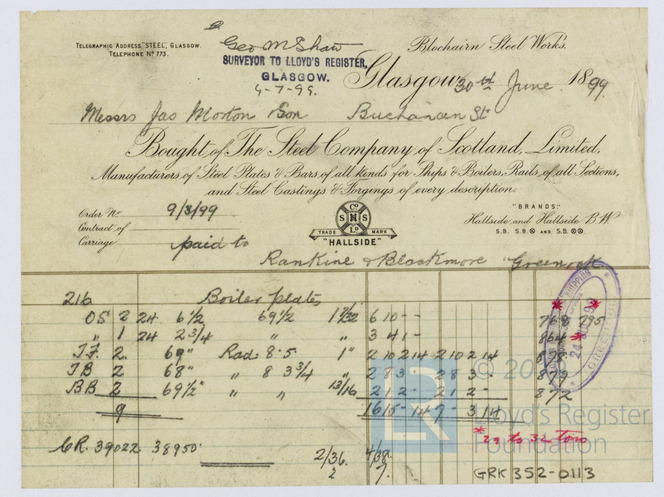 TELEGRAPHIC ADDRESS "STEEL", GLASGOW.
TELEPHONE No 773.
Geo McShaw
SURVEYOR TO LLOYD'S REGISTER,
GLASGOW.
4-7-99.
Blochairn Steel Works.
Glasgow 30th June 1899
Messrs Jas Morton Son Buchanan St
Bought of The Steel Company of Scotland, Limited,
Manufacturers of Steel Plates & Bars of all kinds for Ships & Boilers, Rails of all Sections,
and Steel Castings & Forgings of every description.
Order No 9/3/99
Contract of
Carriage paid to
Co
S H S
Ld
TRADE MARK
"HALLSIDE"
"BRANDS"
Hallside and Hallside B.W
S.B. S.B. AND S.B.
Rankine & Blackmore Greenock
216 Boiler plates
OS 2 24 6½ 69½ 6 10 - - 768 795
" 1 24 2¾ " " 3 4 1 - 864
T.F. 2 69" Rad 8·5 1" 2 10 2 14 2 10 2 14 878
T B 2 68" " 8 3¾ " 2 8 3 - 2 8 3 - 879
BB 2 69½" " " 13/16 2 1 2 - 2 1 2 - 872
9 16 15 - 14 7 - 3 14
*29 to 32 tons
CR. 39022 38950
2/36. 4/39.
2 7.
GRK 352-0113
© 20
LR
Lloyd's Register
Foundation